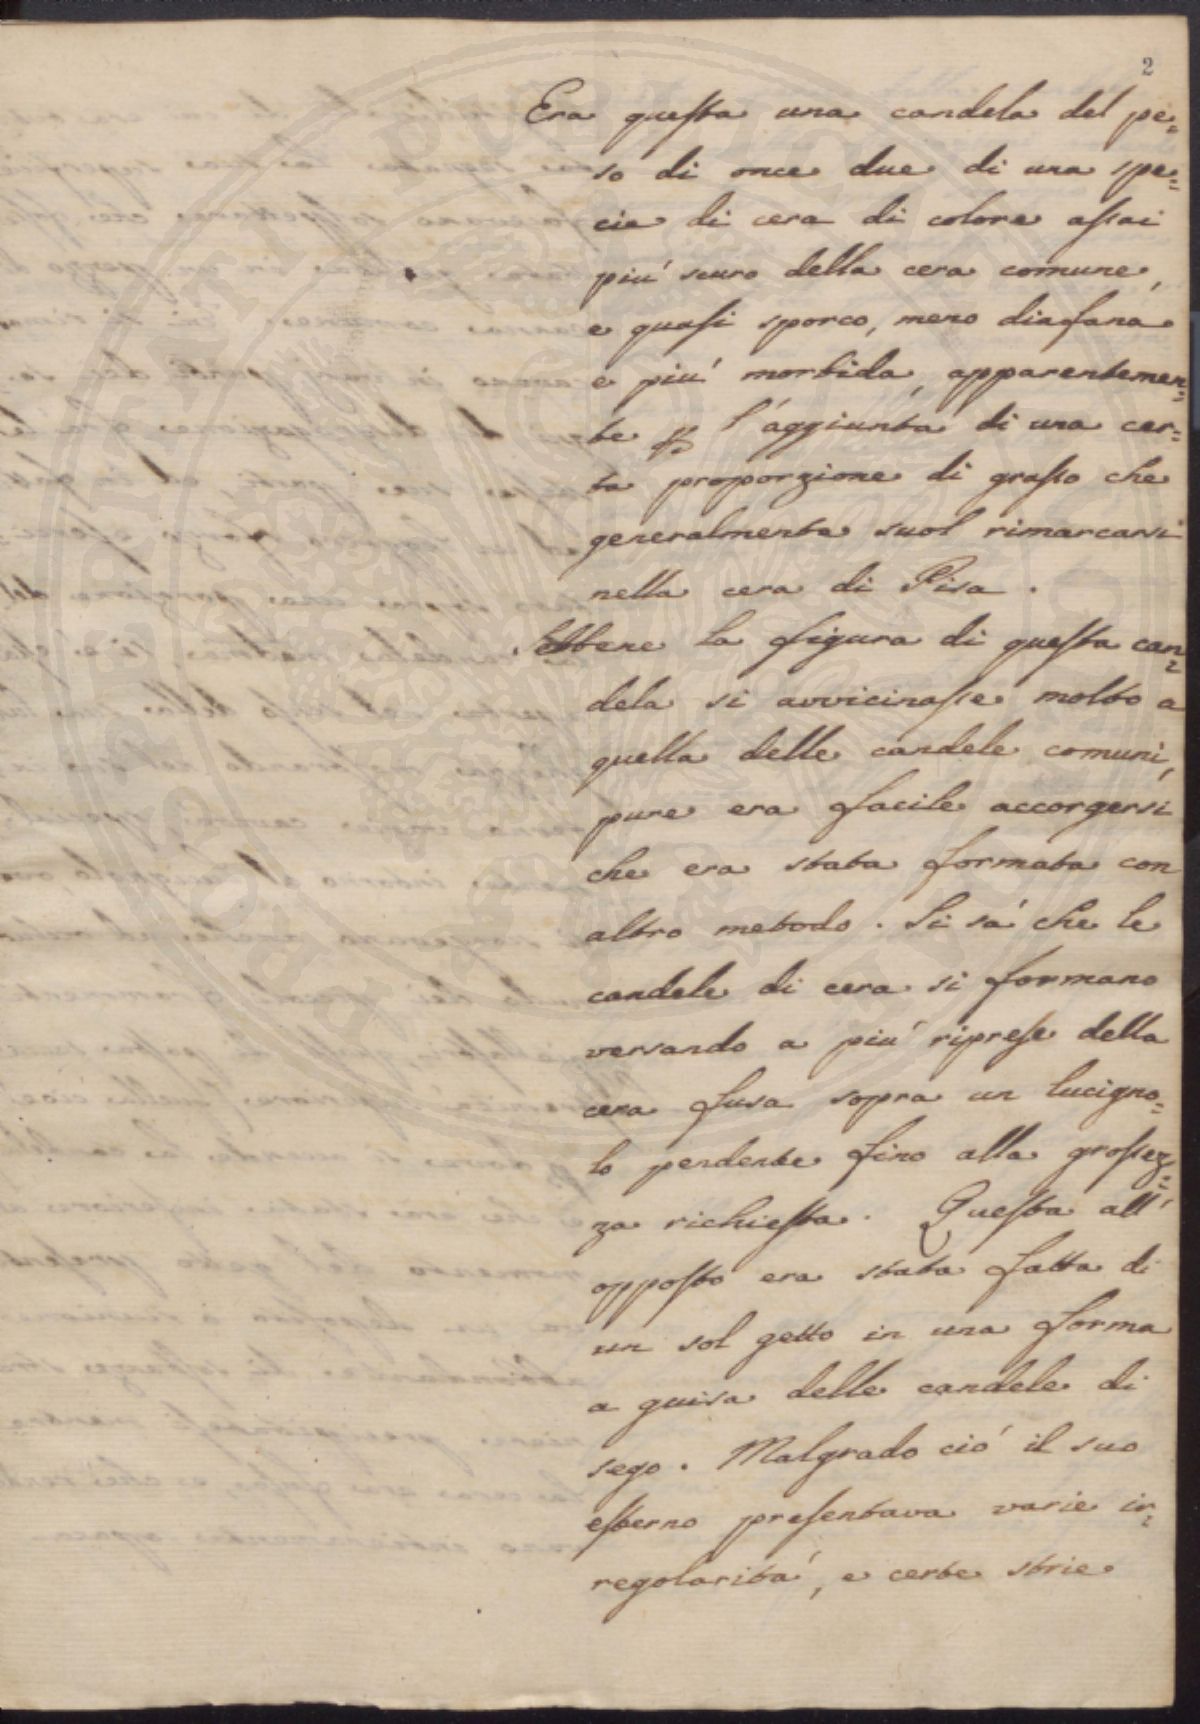 2
Era questa una candela del pe=
so di once due di una spe=
cie di cera di colore assai
piú scuro della cera comune,
e quasi sporco, meno diafana
e piú morbida, apparentemen=
te ꝑ l'aggiunta di una cer=
ta proporzione di grasso che
generalmente suol rimarcarsi
nella cera di Pisa.
Sebbene la figura di questa can=
dela si avvicinasse molto a
quella delle candele comuni,
pure era facile accorgersi
che era stata formata con
altro metodo. Si sá che le
candele di cera si formano
versando a piú riprese della
cera fusa sopra un lucigno=
lo pendente fino alla grossez=
za richiesta. Questa all'
opposto era stata fatta di
un sol getto in una forma
a guisa delle candele di
sego. Malgrado ció il suo
esterno presentava varie ir=
regolaritá, e certe strie